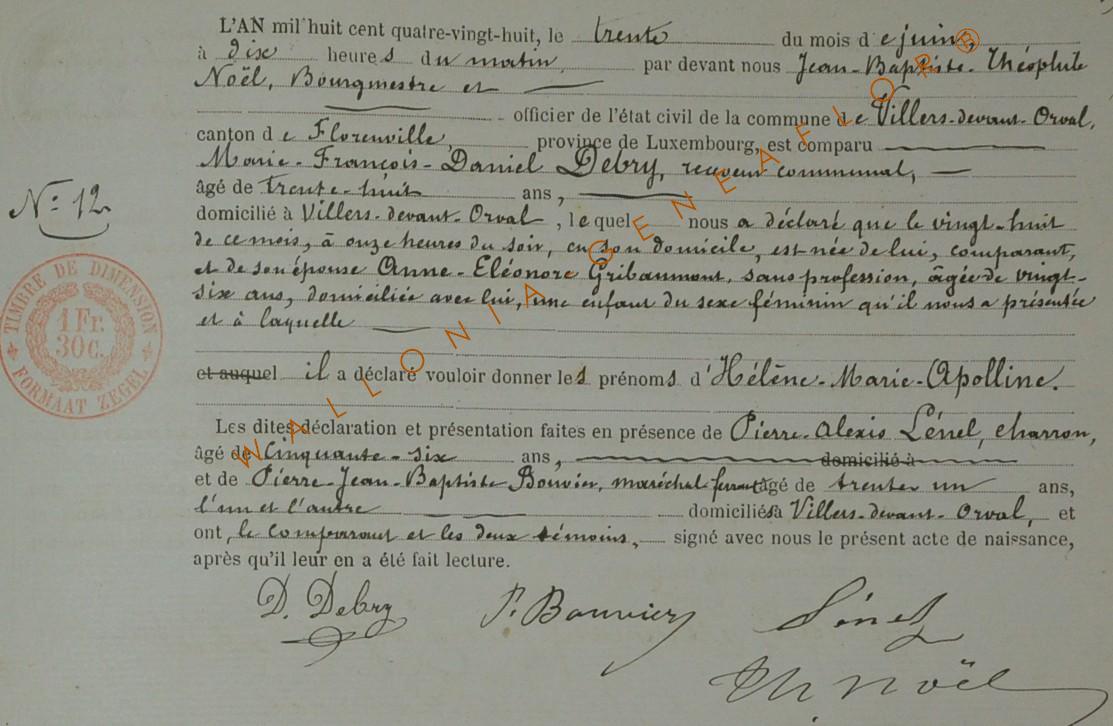 L'AN mil huit cent quatre-vingt-huit, le trente du mois de juin,
à dix heures du matin, par devant nous Jean-Baptiste-Théophile
Noël, Bourgmestre et
officier de l'état civil de la commune de Villers-devant-Orval,
canton de Florenville, province de Luxembourg, est comparu
Marie-François-Daniel Debry, receveur communal,
âgé de trente-huit ans,
N° 12
domicilié à Villers-devant-Orval, lequel nous a déclaré que le vingt-huit
de ce mois, à onze heures du soir, en son domicile, est née de lui, comparant,
et de son épouse Anne-Eléonore Gribaumont, sans profession, âgée de vingt-
six ans, domiciliée avec lui, une enfant du sexe féminin qu'il nous a présentée
et à laquelle
TIMBRE DE DIMENSION
1 Fr.
30 c.
FORMAAT ZEGEL
et auquel il a déclaré vouloir donner les prénoms d'Hélène-Marie-Apolline.
Les dites déclaration et présentation faites en présence de Pierre-Alexis Lénel, charron,
âgé de cinquante-six ans, domicilié à
et de Pierre-Jean-Baptiste Bouvier, maréchal ferrant âgé de trente un ans,
l'un et l'autre domiciliés à Villers-devant-Orval, et
ont, le comparant et les deux témoins, signé avec nous le présent acte de naissance,
après qu'il leur en a été fait lecture.
D. Debry P. Bouvier Lénel
Th. Noël
WALLONIA GENEAFLORB